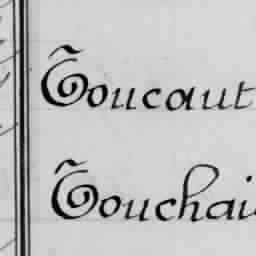 Toucaut
Touchai